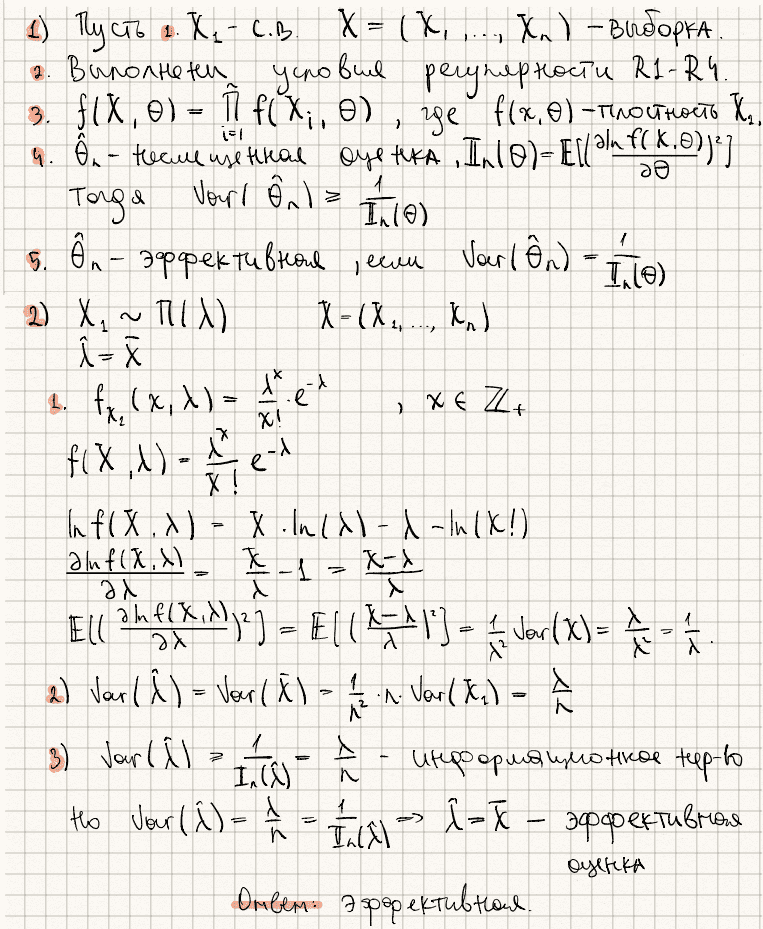 1) Пусть 1. X₁ – с.в. X = (X₁, ..., Xₙ) – выборка.
2. Выполнены условия регулярности R1–R4.
3. f(X, θ) = ∏ᵢ₌₁ⁿ f(Xᵢ, θ), где f(x, θ) – плотность X₁,
4. θ̂ₙ – несмещенная оценка, Iₙ(θ) = E[(∂ln f(X, θ)/∂θ)²]
Тогда Var(θ̂ₙ) ≥ 1/Iₙ(θ)
5. θ̂ₙ – эффективная, если Var(θ̂ₙ) = 1/Iₙ(θ)
2) X₁ ~ Π(λ) X = (X₁, ..., Xₙ)
λ̂ = X̄
1. f_X₁(x, λ) = λˣ/x! · e^(-λ), x ∈ ℤ₊
f(X, λ) = λ^X/X! e^(-λ)
ln f(X, λ) = X · ln(λ) – λ – ln(X!)
∂ln f(X, λ)/∂λ = X/λ – 1 = (X–λ)/λ
E[(∂ln f(X, λ)/∂λ)²] = E[((X–λ)/λ)²] = 1/λ² Var(X) = λ/λ² = 1/λ.
2) Var(λ̂) = Var(X̄) = 1/n² · n · Var(X₁) = λ/n
3) Var(λ̂) ≥ 1/Iₙ(λ̂) = λ/n – информационное нер-во
но Var(λ̂) = λ/n = 1/Iₙ(λ̂) => λ̂ = X̄ – эффективная
оценка
Ответ: эффективная.